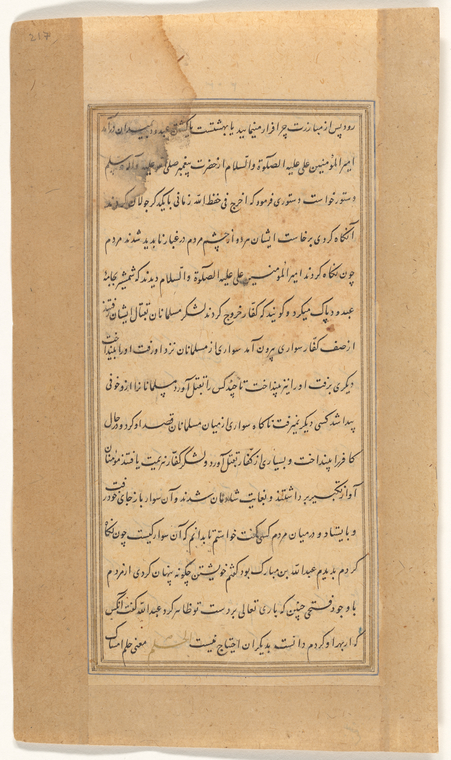 217
رود پس از مبارزت چرا فرار مینمایید یا بهشتست یا کشتن عبدود بمیدان درآمد
امیرالمؤمنین علی علیه الصلوة والسلام از حضرت پیغمبر صلی الله علیه وآله وسلم
دستور خواست دستوری فرمود که اخرج فی حفظ الله زمانی با یکدیگر جولان کردند
آنگاه کردی برخاست ایشان هر دو از چشم مردم در غبار نابدید شدند مردم
چون نگاه کردند امیرالمؤمنین علی علیه الصلوة والسلام دیدند که شمشیر بجامه
عبدود پاک میکرد و گویند که کفار خروج کردند لشکر مسلمانان بقتال ایشان رفتند
از صف کفار سواری بیرون آمد سواری از مسلمانان نزد او رفت او را بینداخت
دیگری برفت او را نیز بینداخت تا چند کس را بقتل آورد مسلمانانرا از و خوفی
پیدا شد کسی دیگر نمیرفت ناکاه سواری از میان مسلمانان قصد او کرد و در حال
کافر را بینداخت و بسیاری از کفار بقتل آورد و لشکر کفار هزیمت یافتند مؤمنان
آواز تکبیر برداشتند و بغایت شادمان شدند و آن سوار باز جای خود رفت
و بایستاد و در میان مردم کسی گفت خواستم تا بدانم که آن سوار کیست چون نگاه
کردم بدیدم عبدالله بن مبارک بود گفتم خویشتن چگونه پنهان کردی از مردم
با وجود فتحی چنین که باری تعالی بر دست تو ظاهر کرد عبدالله گفت آنکس
که از بهر او کردم دانست بدیگران احتیاج نیست الحلم معنی حلم امساک